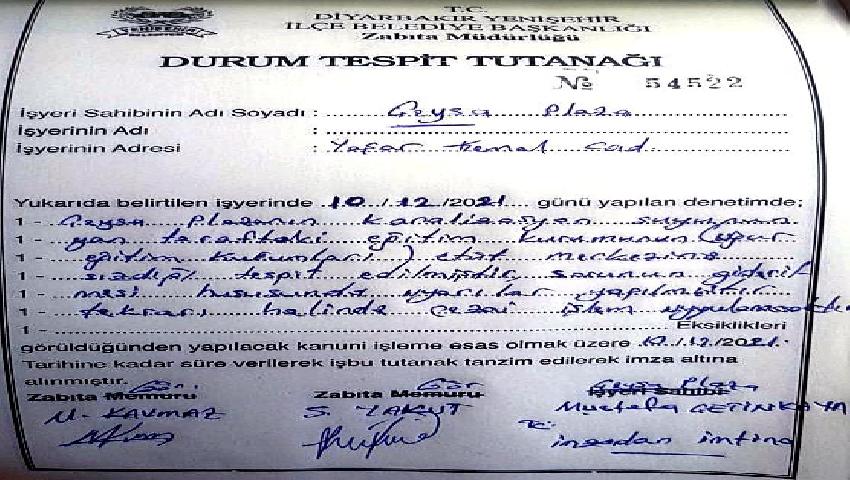 T.C.
DİYARBAKIR YENİŞEHİR
İLÇE BELEDİYE BAŞKANLIĞI
Zabıta Müdürlüğü
DURUM TESPİT TUTANAĞI
No 54522
İşyeri Sahibinin Adı Soyadı : Ceysa Plaza
İşyerinin Adı :
İşyerinin Adresi : Yaşar Kemal Cad
Yukarıda belirtilen işyerinde 10/12/2021 günü yapılan denetimde;
1 - Ceysa Plazanın kanalizasyon suyunun
1 - yan taraftaki eğitim kurumunun (
1 - eğitim kurumları) etüt merkezine
1 - sızdığı tespit edilmiştir sorunun gideril
1 - mesi hususunda uyarılar yapılmıştır
1 - tekrarı halinde cezai işlem uygulanacaktır
1 - Eksiklikleri
görüldüğünden yapılacak kanuni işleme esas olmak üzere /12/2021.
Tarihine kadar süre verilerek işbu tutanak tanzim edilerek imza altına
alınmıştır.
Zabıta Memuru Zabıta Memuru Ceysa Plaza İşyeri Sahibi
M. KAYMAZ S. YAKUT Mustafa ÇETİNKAYA
imzadan imtina